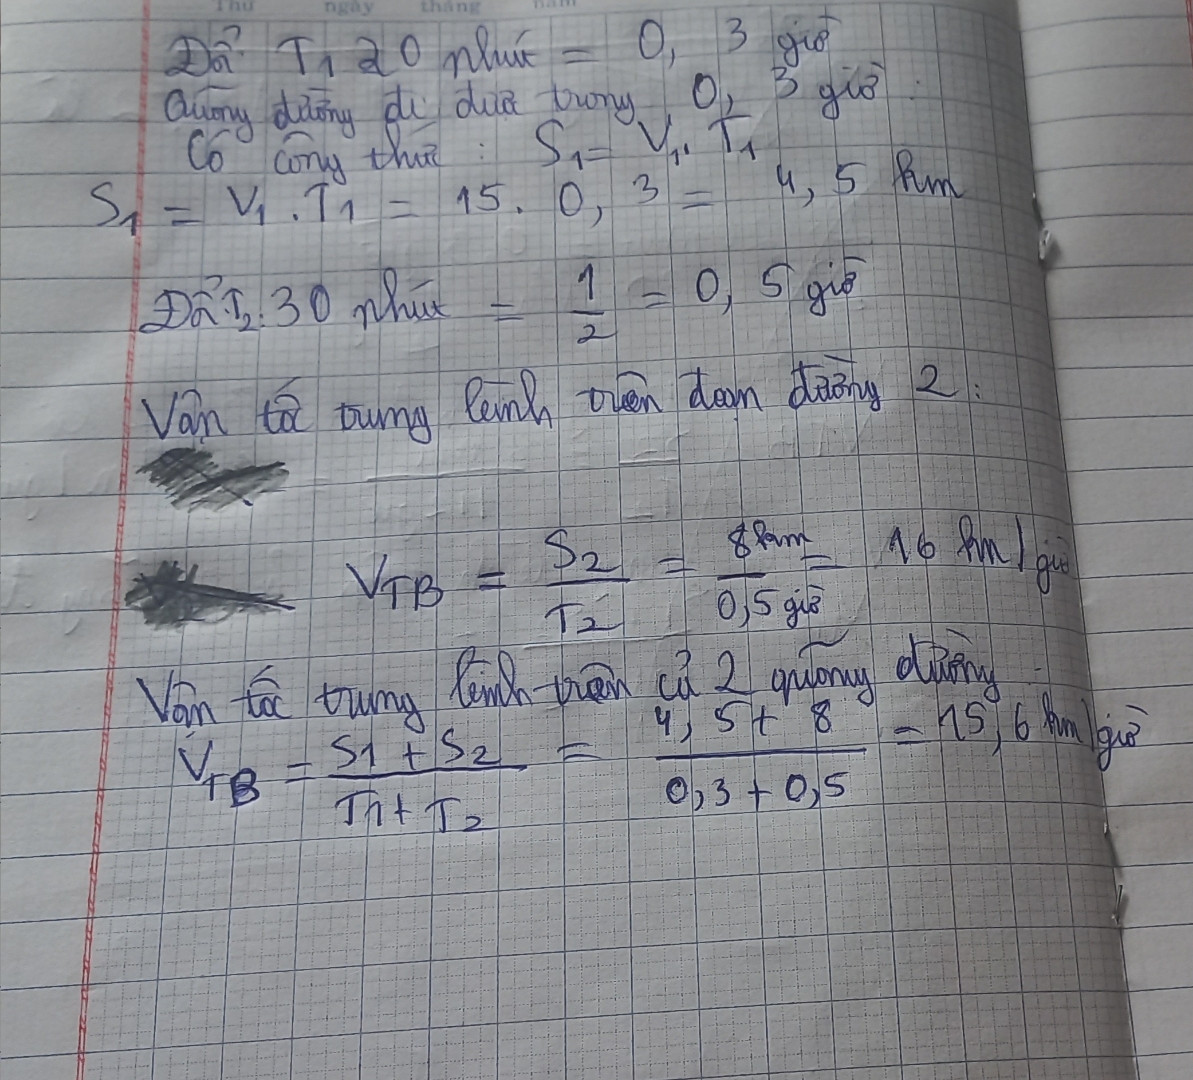 Thứ ngày tháng năm
Đổi T1 20 phút = 0,3 giờ
Quãng đường đi được trong 0,3 giờ :
Có công thức : S1 = V1.T1
S1 = V1.T1 = 15.0,3 = 4,5 km
Đổi T2 30 phút = 1/2 = 0,5 giờ
Vận tốc trung bình trên đoạn đường 2 :
VTB = S2/T2 = 8km/0,5 giờ = 16 km/giờ
Vận tốc trung bình trên cả 2 quãng đường
VTB = S1 + S2/T1 + T2 = 4,5 + 8/0,3 + 0,5 = 15,6 km/giờ